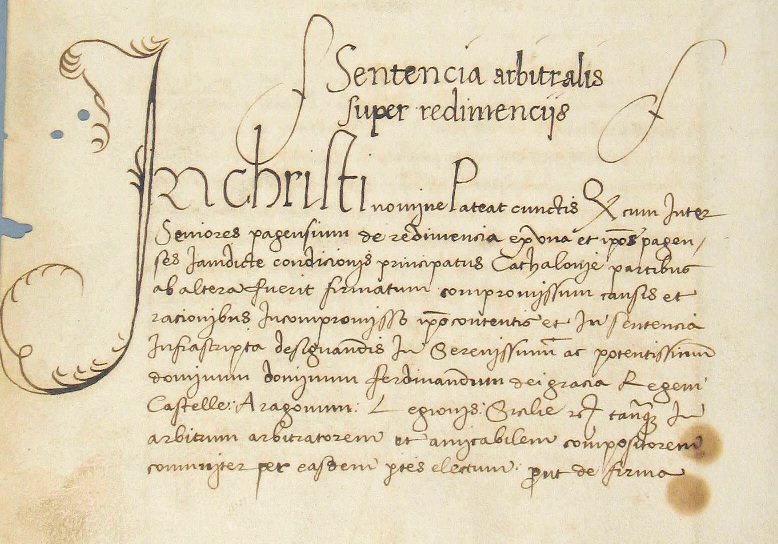 Sentencia arbitralis
super redimencijs
In christi nomine Pateat cunctis Qz cum Inter
Seniores pagensium de redimencia ex vna et ipos pagen/
ses Iamdicte condicionis principatus Cathalonie partibus
ab altera fuerit firmatum compromissum causis et
racionibus Incompromisso ipo contentis et In sentencia
Infrascripta designandis In Serenissimu ac potentissimu
dominum dominum ferdinandum dei gracia Regem
Castelle: Aragonum: Legionis: Sicilie tanqz In
arbitrum arbitratorem et amicabilem compositorem
comuniter per easdem ptes electum: prut de firma